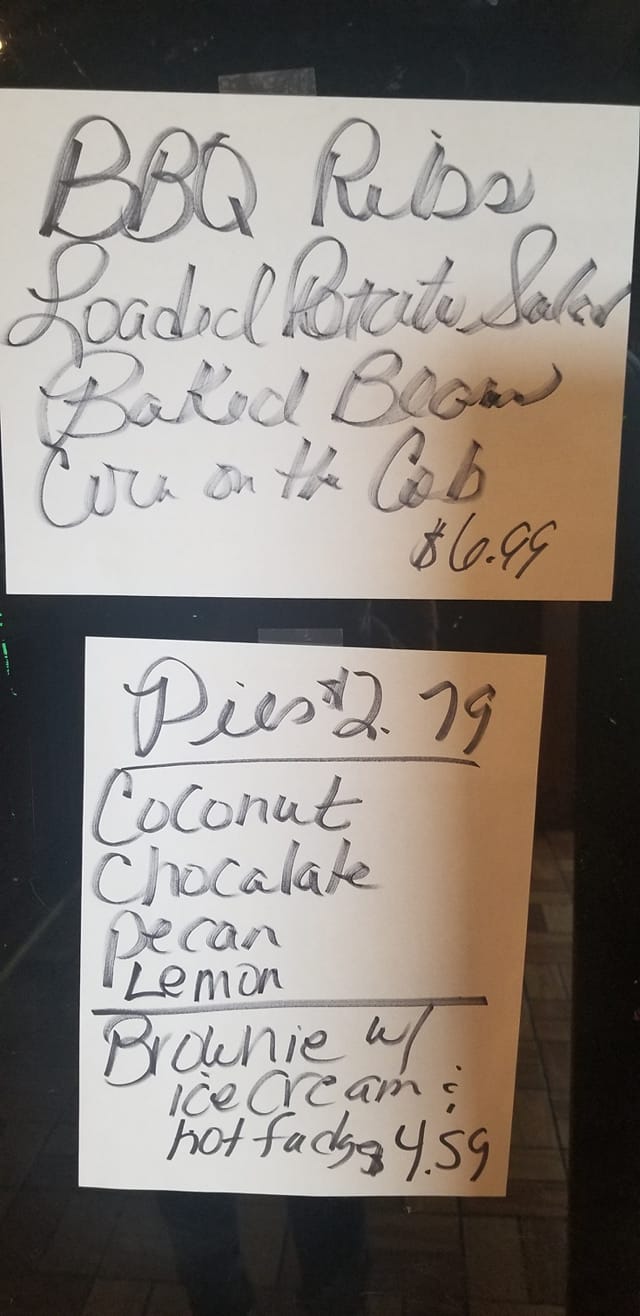 BBQ Ribs
Loaded Potato Salad
Baked Beans
Corn on the Cob
$6.99
Pies $2.79
Coconut
Chocalate
pecan
Lemon
Brownie w/
ice cream &
hot fudge $4.59